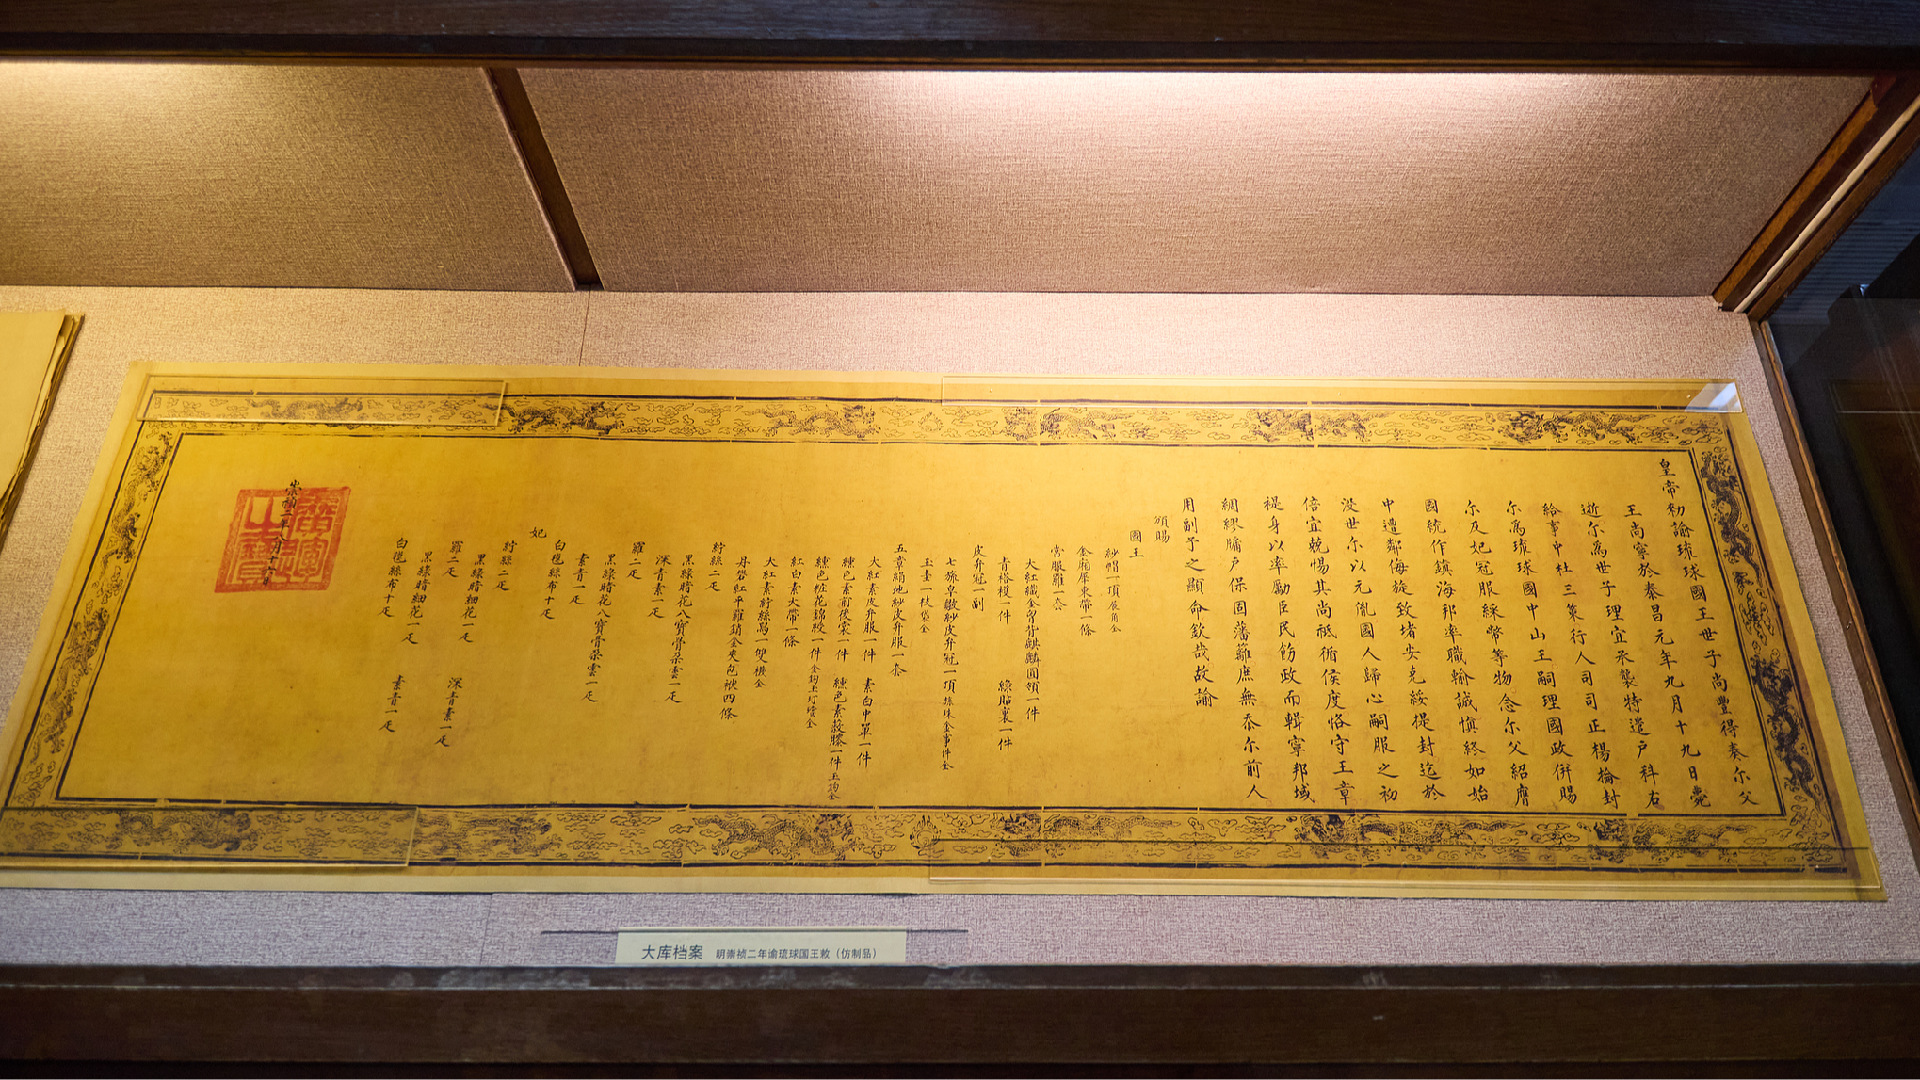 皇帝勑諭琉球國王世子尚豐得奏尔父
王尚寧於泰昌元年九月十九日薨
逝尔為世子理宜承襲特遣户科右
給事中杜三策行人司司正楊掄封
尔為琉球國中山王嗣理國政併賜
尔及妃冠服綵幣等物念尔父紹膺
國統作鎮海邦率職輸誠慎終如始
中遭鄰侮旋致堵安克綏提封迄於
没世尔以元胤國人歸心嗣服之初
倍宜兢惕其尚祗循侯度恪守王章
禔身以率勵臣民飭政而輯寧邦域
綢繆牖户保固藩籬庶無忝尔前人
用副予之顯命欽哉故諭
頒賜
國王
紗帽一頂展角全
金廂犀束帶一條
常服羅一套
大紅織金胷背麒麟圓領一件
青褡𧞤一件 綠貼裏一件
皮弁冠一副
七旒皁皺紗皮弁冠一頂旒珠金事件全
玉圭一枝袋全
五章絹地紗皮弁服一套
大紅素皮弁服一件 素白中單一件
纁色素前後裳一件 纁色素蔽膝一件玉鈎全
纁色粧花錦綬一件金鈎玉玎璫全
紅白素大帶一條
大紅素紵絲舄一雙襪全
丹礬紅平羅銷金夾包袱四條
紵絲二疋
黑綠暗花八寶骨朵雲一疋
深青素一疋
羅二疋
黑綠暗花八寶骨朵雲一疋
素青一疋
白氁絲布十疋
妃
紵絲二疋
黑綠暗細花一疋 深青素一疋
羅二疋
黑綠暗細花一疋 素青一疋
白氁絲布十疋
崇禎二年八月十六日
廣運之寶
大库档案 明崇祯二年谕琉球国王敕（仿制品）